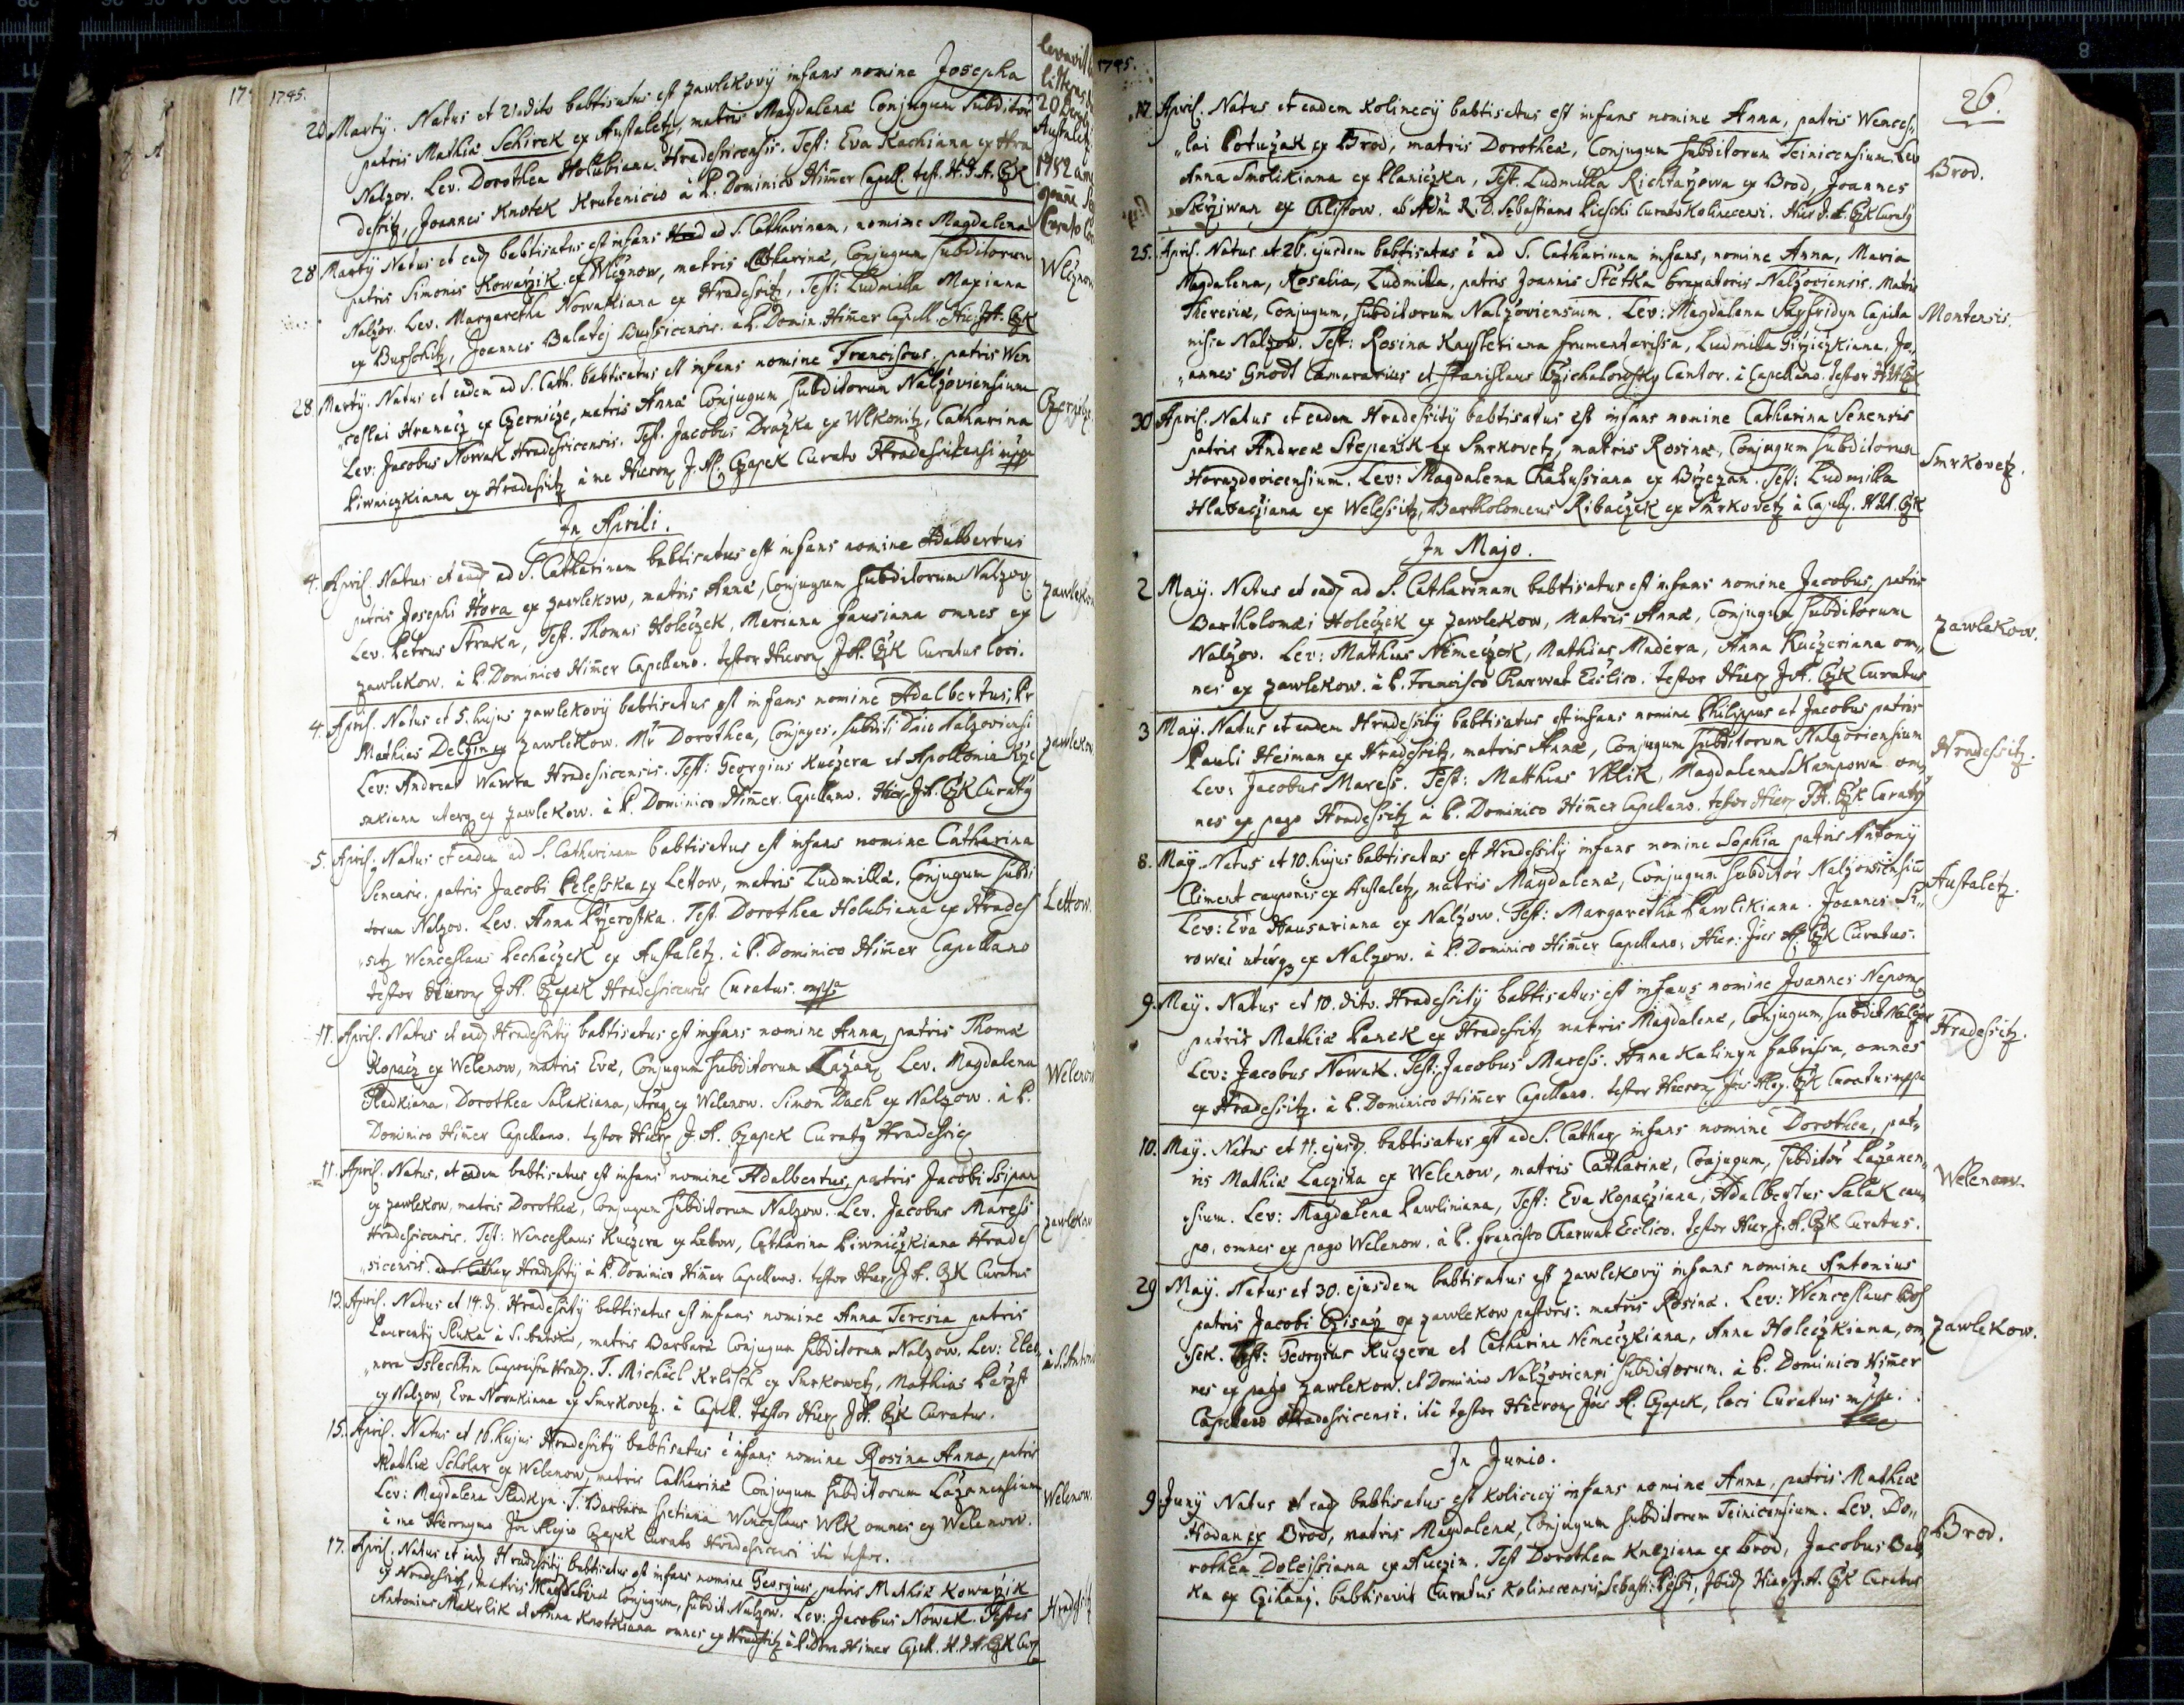 1745.
20 Martÿ. Natus et 21. dito babtisatus est Zawlekovÿ infans nomine Josepha
patris Mathiæ Schirek ex Austaletz, matris Magdalenæ Conjugum Subditor
Nalzov. Lev. Dorothea Holubiana Hradessicensis. Test: Eva Kachiana ex Hra
dessitz, Joannes Knotek Krutenicio à P. Dominico Himer Capell. test. H. J. A. Czk
levavit
litteras
20
Austaletz
1752
Curato
28 Martÿ Natus et eadz babtisatus est infans ad S. Catharinam, nomine Magdalena
patris Simonis Kowarzik ex Wlcznow, matris Catharinæ, Conjugum Subditorum
Nalzov. Lev. Margaretha Nowakiana ex Hradessitz, Test: Ludmilla Maxiana
ex Bussowitz, Joannes Balatej Bussicensis. a P. Domin. Himer Capell. Hie: J. A. Czk
Wlcznow
28 Martÿ. Natus et eadem ad S. Cath. babtisatus est infans nomine Franciscus. patris Wen
ceslai Hranacz ex Czernicze, matris Annæ Conjugum Subditorum Nalzoviensium
Lev: Jacobus Nowak Hradessicensis. Test. Jacobus Drazka ex Wlkonitz, Catharina
Piwniczkiana ex Hradessitz à me Hieron J. A. Czapek Curato Hradessicensi mppa
In Aprili.
4. April. Natus et eadz ad S. Catharinam babtisatus est infans nomine Adalbertus
patris Josephi Hora ex Zawlekow, matris Annæ, Conjugum Subditorum Nalzov
Lev. Petrus Straka, Test. Thomas Holeczek, Mariana Jansiana omnes ex
Zawlekow. à P. Dominico Himer Capellano. testor Hieron J. A. Czk Curatus loci.
Zawlekow
4. April. Natus et 5. hujus Zawlekovÿ babtisatus est infans nomine Adalbertus, Pr
Mathias Delfin ex Zawlekow. Mr Dorothea, Conjuges, Subditi Dnio Nalzoviensi
Lev: Andreas Wawra Hradessicensis. Test: Georgius Kuczera et Apollonia
ex Zawlekow. à P. Dominico Himer Capellano. Hier J. A. Czk Curatÿ
Zawlekow
5. April. Natus et eadem ad S. Catharinam babtisatus est infans nomine Catharina
Senensis. patris Jacobi Pelesska ex Lettow, matris Ludmillæ, Conjugum Subdi
torum Nalzov. Lev. Anna Przerostka. Test. Dorothea Holubiana ex Hrades
sitz Wenceslaus Pechaczek ex Austaletz. à P. Dominico Himer Capellano
testor Hieron J. A. Czapek Hradessicensis Curatus. mppa
Lettow.
11. April. Natus et eadz Hradessitÿ babtisatus est infans nomine Anna, patris Thomæ
Kopacz ex Welenow, matris Evæ, Conjugum Subditorum Lazan Lev. Magdalena
Sladkiana, Dorothea Salakiana, utraq ex Welenow. Simon Dach ex Nalzow. à P.
Dominico Himer Capellano. testor Hier J. A. Czapek Curatÿ Hradessic
Welenow
11. April. Natus, et eadem babtisatus est infans nomine Adalbertus, patris Jacobi
ex Zawlekow, matris Dorotheæ, Conjugum Subditorum Nalzow. Lev. Jacobus Maress
Hradessicensis. Test: Wenceslaus Kuczera ex Lettow, Catharina Piwniczkiana Hrades
sicensis. ad S. Cathar Hradessitÿ à P. Dominico Himer Capellano. testor Hier J. A. Czk Curatus
Zawlekow
13. April. Natus et 14. dz Hradessitÿ babtisatus est infans nomine Anna Teresia patris
Laurentÿ Sluka à S. Antonio, matris Barbaræ Conjugum Subditorum Nalzow. Lev: Eleo
nora Sslechtin Hradz. T. Michael Krlisch ex Smrkowetz, Mathias
ex Nalzow, Eva Nowakiana ex Smrkovetz. à Capell. testor Hier J. A. Czk Curatus.
à S. Antonio
15. April. Natus et 16. hujus Hradessitÿ babtisatus e infans nomine Rosina Anna, patris
Mathiæ Scholar ex Welenow, matris Catharinæ Conjugum Subditorum Lazanensium
Lev: Magdalena Sladkyn. T. Barbara Wenceslaus Wlk omnes ex Welenow.
à me Hieronymo Jos Alexio Czapek Curato Hradessicensi ita testor.
Welenow.
17. April. Natus et eadz Hradessitÿ babtisatus est infans nomine Georgius, patris Mathiæ Kowarzik
ex Hradessitz, matris Magdalenæ Conjugum, Subdit. Nalzow. Lev: Jacobus Nowak. Testes
Antonius Makrlik et Anna Knotkiana omnes ex Hradessitz à P. Dom. Himer Capell. H. J. A. Czk Cur
Hradessitz
1745.
26.
17. April. Natus et eadem Kolinecÿ babtisatus est infans nomine Anna, patris Wences
lai Potuzak ex Brod, matris Dorotheæ, Conjugum Subditorum Teinicensium. Lev
Anna Smolikiana ex Planiczka, Test. Ludmilla Richtarzowa ex Brod, Joannes
Skrziwan ex Chlistow. ab Adm R. D. Sebastiano Pieschi Curato Kolinecensi. Hier J. A. Czk Curatÿ
Brod.
25. April. Natus et 26. ejusdem babtisatus e ad S. Catharinam infans, nomine Anna, Maria
Magdalena, Rosalia, Ludmilla, patris Joannis Stetka braxatoris Nalzoviensis. Matris
Theresiæ, Conjugum, Subditorum Nalzoviensium. Lev: Magdalena Seyfridyn Capita
nissa Nalzow. Test: Rosina Knystetiana frumentarissa, Ludmilla Girziczkiana, Jo
annes Gnodt Camararius et Stanislaus Czichalowsky Cantor. à Capellano. testor H J A Czk
Montensis.
30 April. Natus et eadem Hradessitÿ babtisatus est infans nomine Catharina Senensis
patris Andreæ Stepanik ex Smrkovetz, matris Rosinæ, Conjugum Subditorum
Horazdovicensium. Lev: Magdalena Chalussiana ex Brzezan. Test: Ludmilla
Hlabacziana ex Welessitz, Bartholomeus Ribaczek ex Smrkovetz à Capell. H J A. Czk
Smrkovetz.
In Majo.
2 May. Natus et eadz ad S. Catharinam babtisatus est infans nomine Jacobus, patris
Bartholomæi Holeczek ex Zawlekow, Matris Annæ, Conjugum Subditorum
Nalzov. Lev: Mathias Nemeczek, Mathias Madera, Anna Kuczeriana om
nes ex Zawlekow. à P. Francisco Charwat Ecclico. testor Hier J A. Czk Curatus
Zawlekow.
3 May. Natus et eadem Hradessitÿ babtisatus est infans nomine Philippus et Jacobus patris
Pauli Heiman ex Hradessitz, matris Annæ, Conjugum Subditorum Nalzoviensium
Lev: Jacobus Maress. Test: Matthias Uhlik, Magdalena Skampowa om
nes ex pago Hradessitz à P. Dominico Himer Capellano. testor Hier J A. Czk Curatÿ
Hradessitz.
8. May. Natus et 10. hujus babtisatus est Hradessitÿ infans nomine Sophia patris Antonÿ
Climent cauponis ex Austaletz, matris Magdalenæ, Conjugum Subditor Nalzoviensiu
Lev: Eva Hausariana ex Nalzow. Test: Margaretha Pawlikiana. Joannes Si
rowei uterq ex Nalzow. à P. Dominico Himer Capellano, Hier: Jos A. Czk Curatus.
Austaletz.
9. May. Natus et 10. dito. Hradessitÿ babtisatus est infans nomine Joannes Nepom
patris Mathiæ Panek ex Hradessitz matris Magdalenæ, Conjugum, Subdit Nalzov
Lev: Jacobus Nowak. Test: Jacobus Maress. Anna Kalinyn fabrissa, omnes
ex Hradessitz. à P. Dominico Himer Capellano. testor Hieron Jos Alex. Czk Curatus mppa
Hradessitz.
10. May. Natus et 11. ejusdz babtisatus est ad S. Cathar infans nomine Dorothea, pat
ris Mathiæ Laczina ex Welenow, matris Catharinæ, Conjugum, Subditor Lazanen
sium. Lev: Magdalena Pawliniana, Test: Eva Kopacziana, Adalbertus Salak cau
po, omnes ex pago Welenow. à P. Francisco Charwat Ecclico. testor Hier J. A. Czk Curatus.
Welenow.
29 May. Natus et 30. ejusdem babtisatus est Zawlekovÿ infans nomine Antonius
patris Jacobi Czisarz ex Zawlekow pastoris: matris Rosinæ. Lev: Wenceslaus
sek. Test: Georgius Kuczera et Catharina Nemeczkiana, Anna Holeczkiana, om
nes ex pago Zawlekow, et Dominio Nalzoviensi Subditorum. à P. Dominico Himer
Capellano Hradessicensi. ita testor Hieron Jos A. Czapek, loci Curatus mppa.
Zawlekow.
In Junio.
9. Junÿ Natus et eadz babtisatus est Kolinecÿ infans nomine Anna, patris Mathiæ
Hodan ex Brod, matris Magdalenæ, Conjugum Subditorum Teinicensium. Lev. Do
rothea Dolejssiana ex Auczin. Test Dorothea Knieziana ex Brod, Jacobus Bab
ka ex Czihanj. babtisavit Curatus Kolinecensis Sebasti: Pieschi, Ibidz Hier J. A. Czk Curatus
Brod.